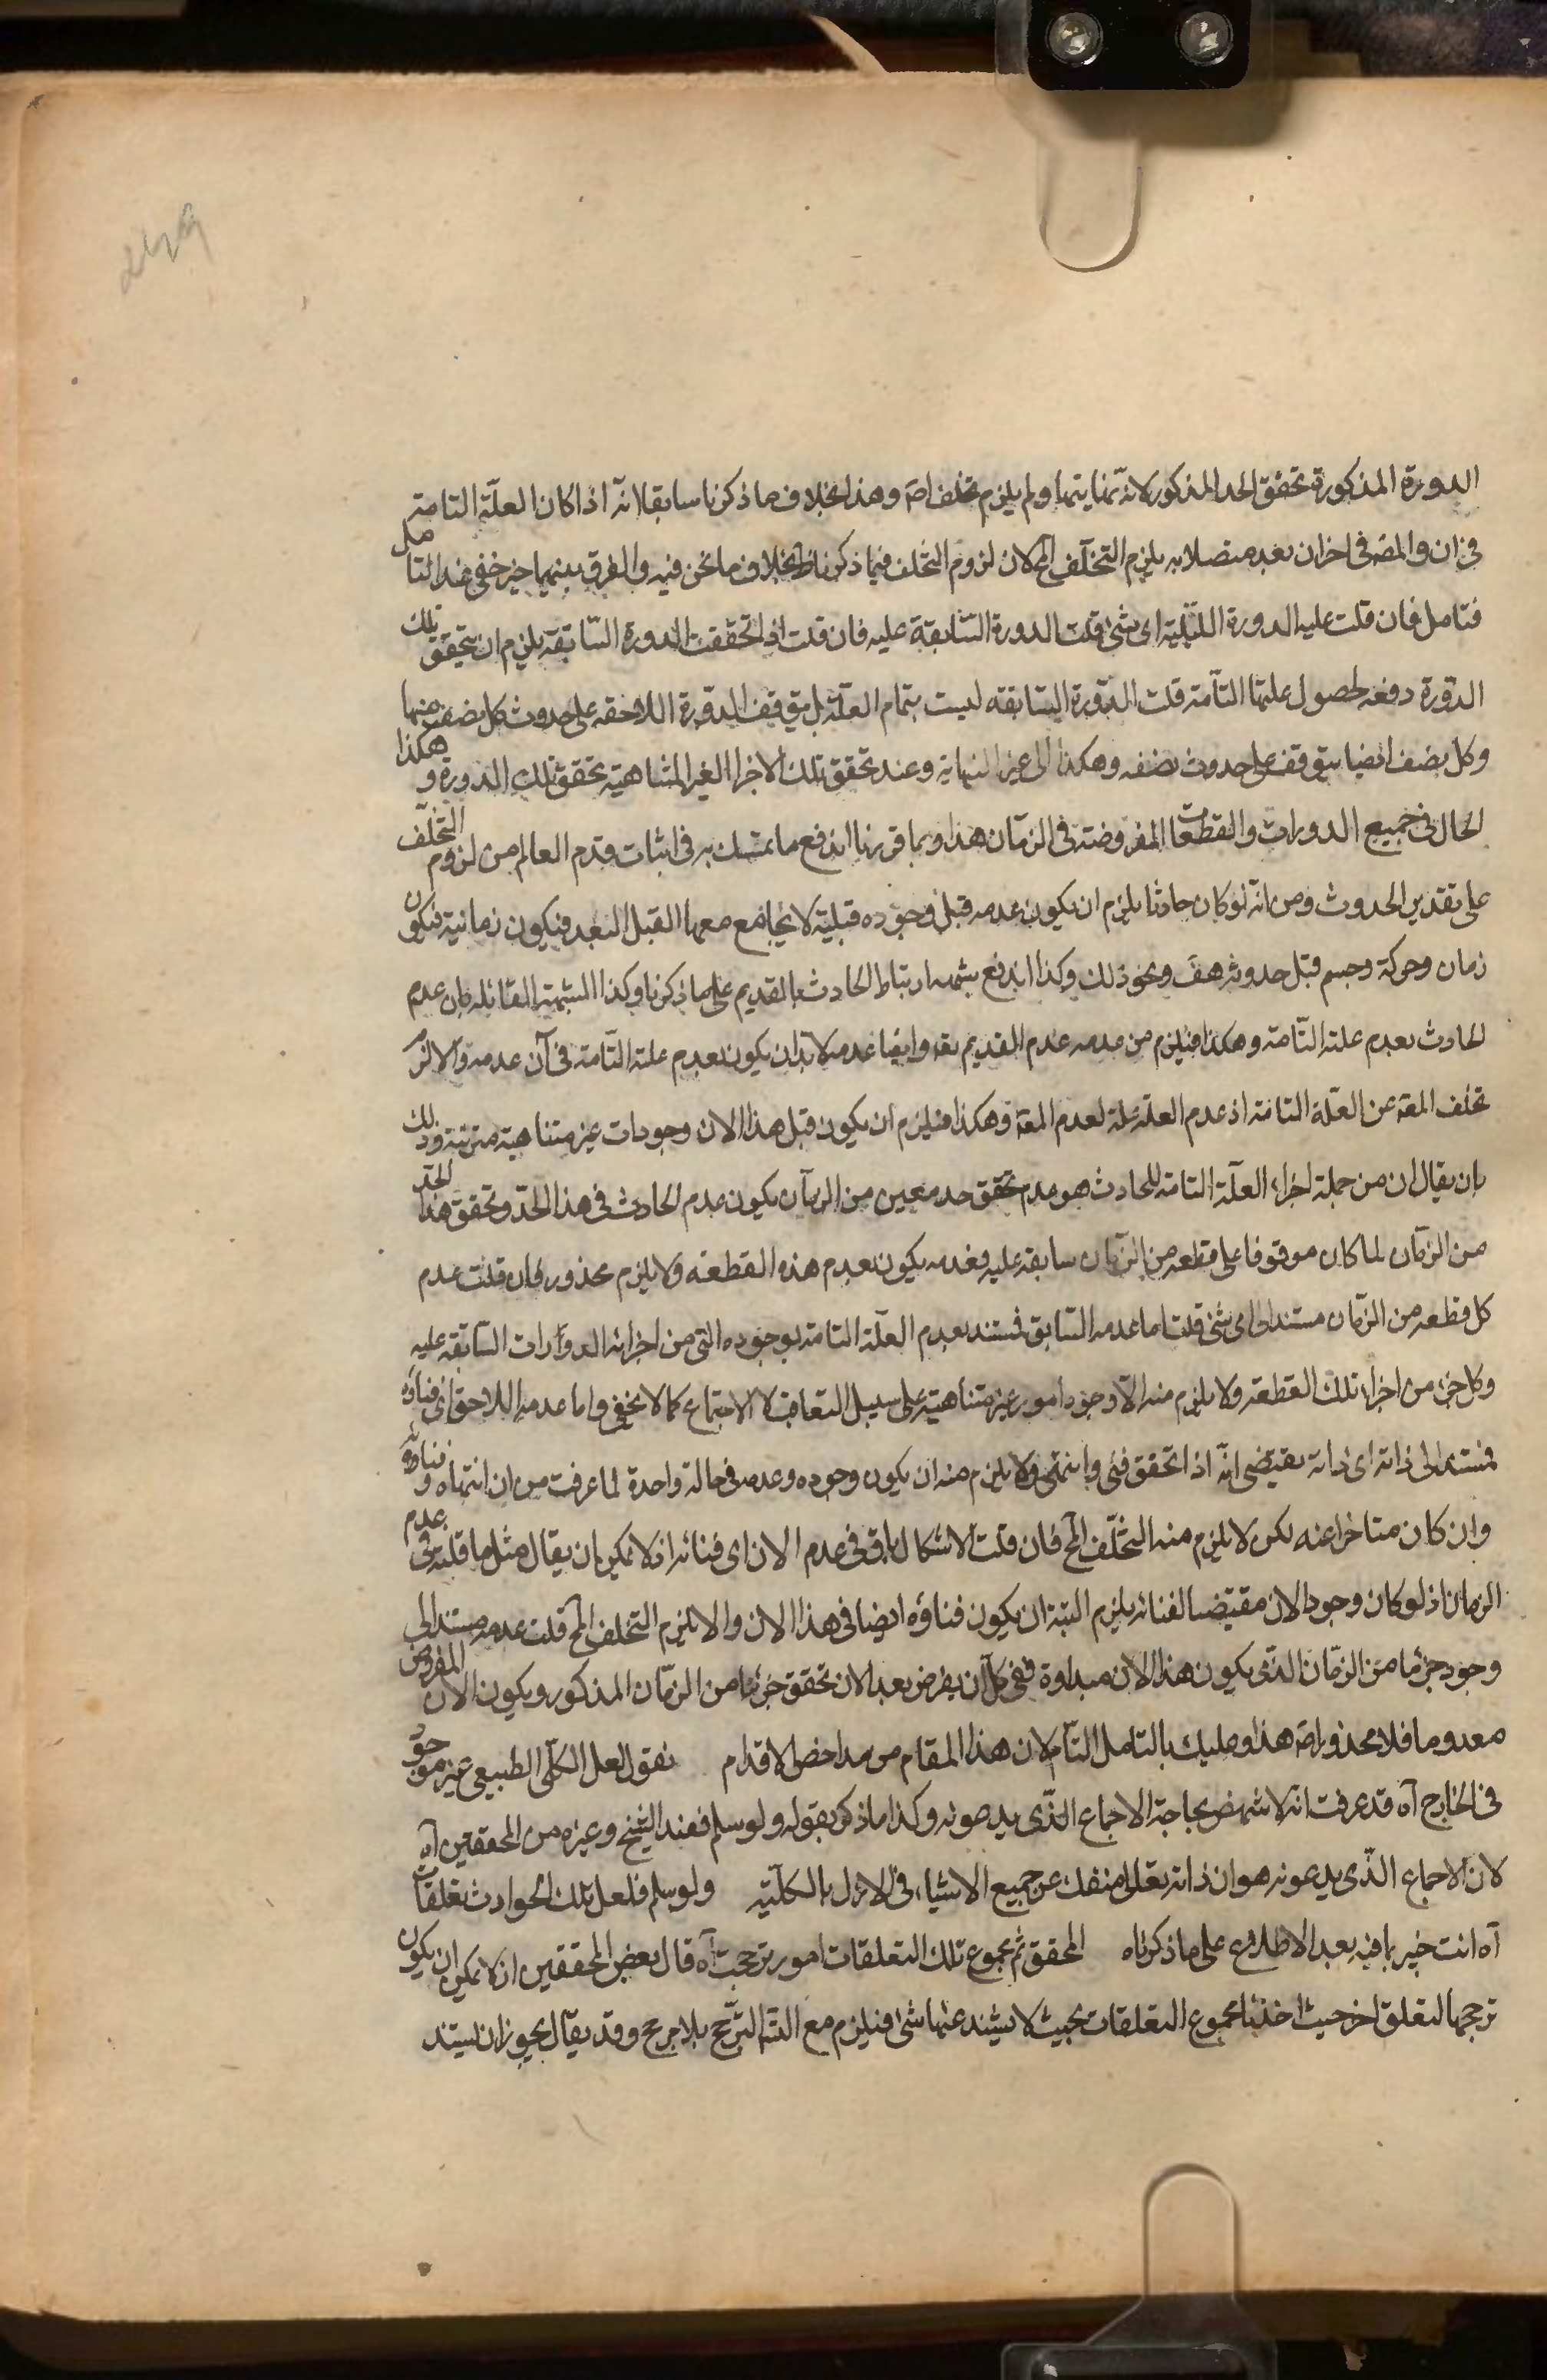 الدورة المذكورة تحقق الحد المذكور لانه تمنايتها ولم يلزم تخلف اصۃ وهذا بخلاف ما ذكرنا سابقا انّه اذا كان العلّة التامة
في ان والمعۃ في اخر ان بعده متصلا به يلزم التخلّف المح لان لزوم التخلف فيما ذكرنا ظ بخلاف ما نحن فيه والفرق بينهما خير خفي عند التامل
فتامل فان قلت عليه الدورة الليلية اى شئ قلت الدورة السّابقة عليه فان قلت اذا تحققت الدورة السّابقة يلزم ان يتحقق تلك
الدّورة دفعه لحصول علتها التّامة قلت الدّورة السّابقه ليست بتمام العلّة بل يتوقف الدورة اللاحقه على حدوث كل نصف منها
وكل نصف ايضا يتوقف على حدوث نصفه وهكذا الى غير النهاية وعند تحقق تلك الاجزا الغير المتناهية تحقق تلك الدورة وهكذا
الحال في جميع الدورات والقطعات المفروضة في الزمان هذا وبما قررنا اندفع ما تمسّك به في اثبات قدم العالم من لزوم التخلّف
على تقدير الحدوث ومن انّه لو كان حادثا يلزم ان يكون عدمه قبل وجوده قبليّة لا يجامع معها القبل البعد فيكون زمانية فيكون
زمان وحركة وجسم قبل حدوثه هف ونحو ذلك وكذا اندفع شبهه ارتباط الحادث بالقديم على ما ذكرنا وكذا الشبهة القائله بان عدم
الحادث بعدم علته التّامة وهكذا فيلزم من عدمه عدم القديم تعۃ وايضا عدمه لا بد ان يكون بعدم علته التّامة في آن عدمه والا لزم
تخلف المعۃ عن العلّة التامۃ اذ عدم العلّة علة لعدم المعۃ وهكذا فيلزم ان يكون قبل هذا الان وجودات غير متناهية مترتبة وذلك
بان يقال ان من جملة اجزاء العلّة التامۃ للحادث هو عدم تحقق حد معين من الزمان يكون عدم الحادث في هذا الحدّ وتحقق هذا الحدّ
من الزمان لما كان موقوفا على قطعه من الزمان سابقه عليه فعدمه يكون بعدم هذه القطعه ولا يلزم محذور فان قلت عدم
كل قطعه من الزمان مستند الى اى شئ قلت اما عدمه السّابق فمستند بعدم العلّة التامۃ لوجوده التي من اجزائه الدورات السّابقة عليه
وكل جزء من اجزاء تلك القطعة ولا يلزم منه الّا وجود امور غير متناهية على سبيل التعاقب لا الاجتماع كما لا يخفى واما عدمه اللاحق اى فناؤه
فمستند الى ذاته اى ذاته يقتضي انّه اذا تحقق فنى وانتهى ولا يلزم منه ان يكون وجوده وعدمه في حالة واحدة لما عرفت من ان انتهاه وفناؤه
وان كان متاخرا عنه لكن لا يلزم منه التخلّف المح فان قلت الاشكال باق في عدم الان اى فنائه اذ لا يمكن ان يقال مثل ما قلته في عدم
الزمان اذ لو كان وجود الان مقتضيا لفنائه يلزم البتة ان يكون فناؤه ايضا في هذا الان والا يلزم التخلف المح قلت عدمه مستند الى
وجود جزء ما من الزمّان الذى يكون هذا الان مبداوه ففى كل ان يفرض بعد الان تحقق جزء ما من الزمّان المذكور ويكون الان المفروض
معدوما فلا محذور اصۃ هذا وعليك بالتامل التّام لان هذا المقام من مداحض الاقدام نقول لعل الكلّى الطبيعى غير موجود
في الخارج آه قد عرفت انه لا نتمض بحاجۃ الاجماع الذّى يدعونه وكذا ما ذكر بقوله ولو سلم فعند الشيخ وغيره من المحققين آه
لان الاجماع الذّى يدعونه هو ان ذاته تعالى منفك عن جميع الاشياء في الازل بالكليّة ولو سلم فلعل تلك الحوادث تعلقات
آه انت خبير بما فيه بعد الاطلاع على ما ذكرناه المحقق ثم مجموع تلك التعلقات امور ترجحت آه قال بعض المحققين اذ لا يمكن ان يكون
ترجحها لتعلق اخر حيث اخذنا مجموع التعلقات بحيث لا يشذ عنها شئ فيلزم مع التسۃ الترّجح بلا مرجح وقد يقال يجوز ان يستند